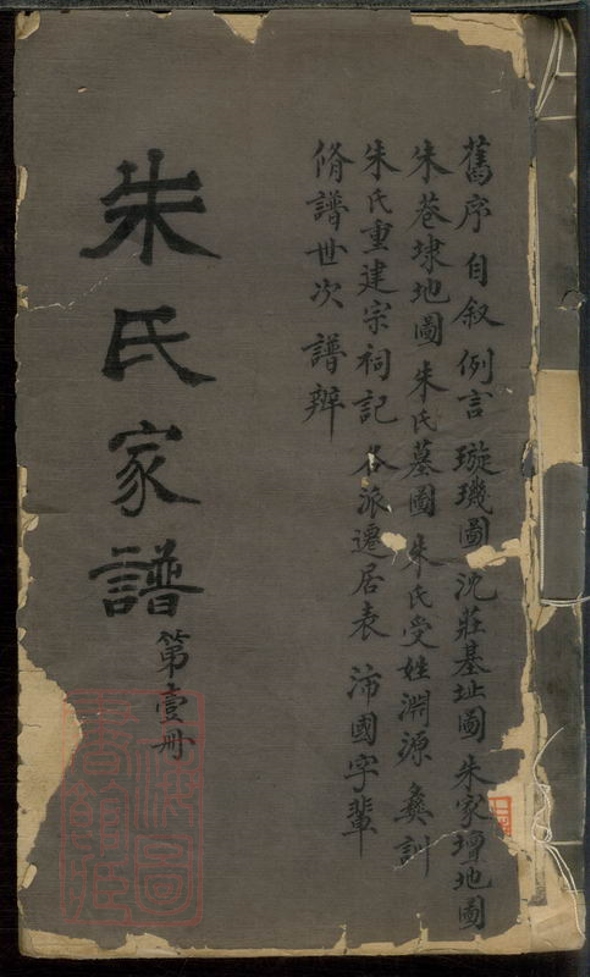 舊序 自叙 例言 璇璣圖 沈莊基址圖 朱家壇地圖
朱巷埭地圖 朱氏墓圖 朱氏受姓淵源 彝訓
朱氏重建宗祠記 各派遷居表 沛國字輩
脩譜世次 譜辨
朱氏家譜
第壹冊